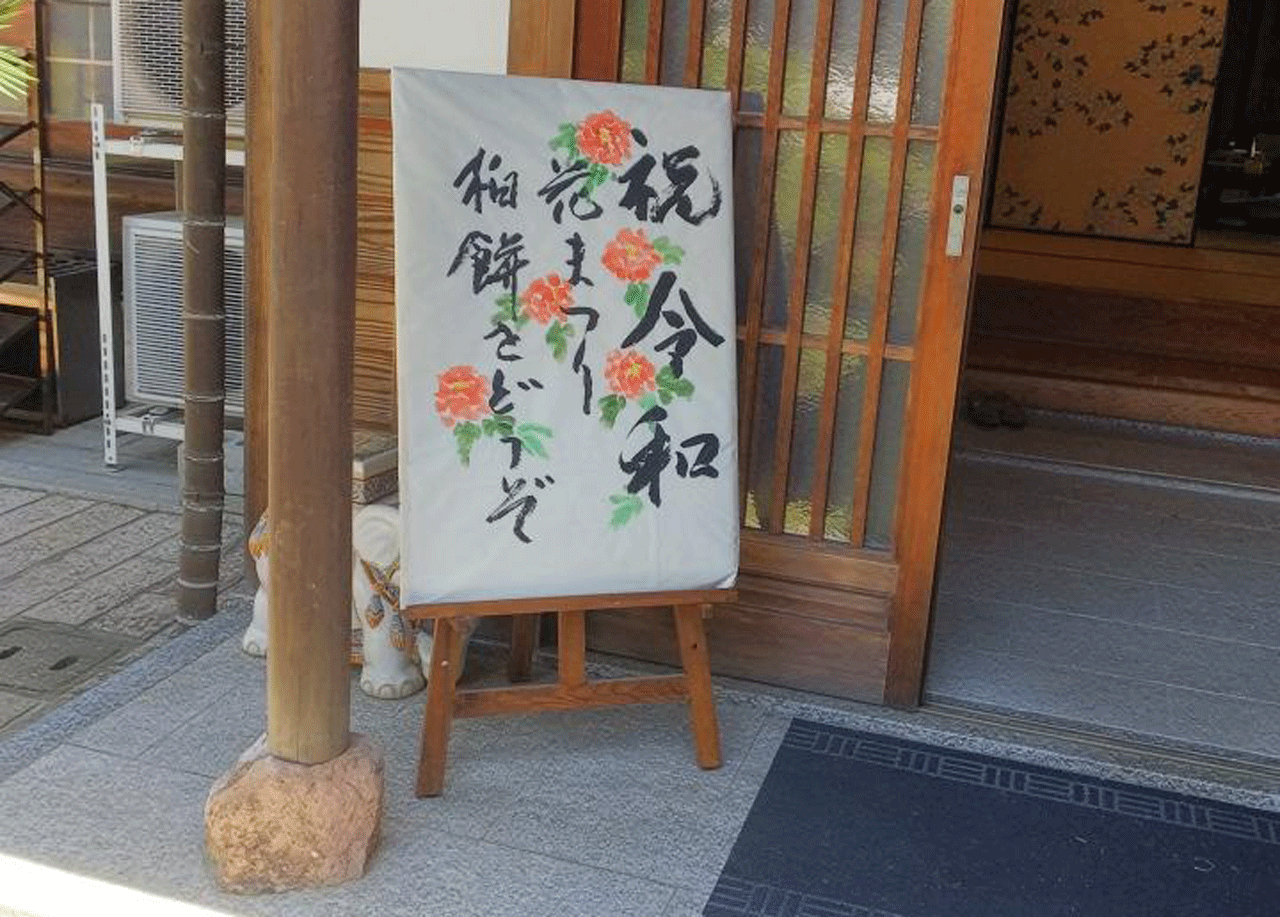 祝令和
花まつり
柏餅をどうぞ